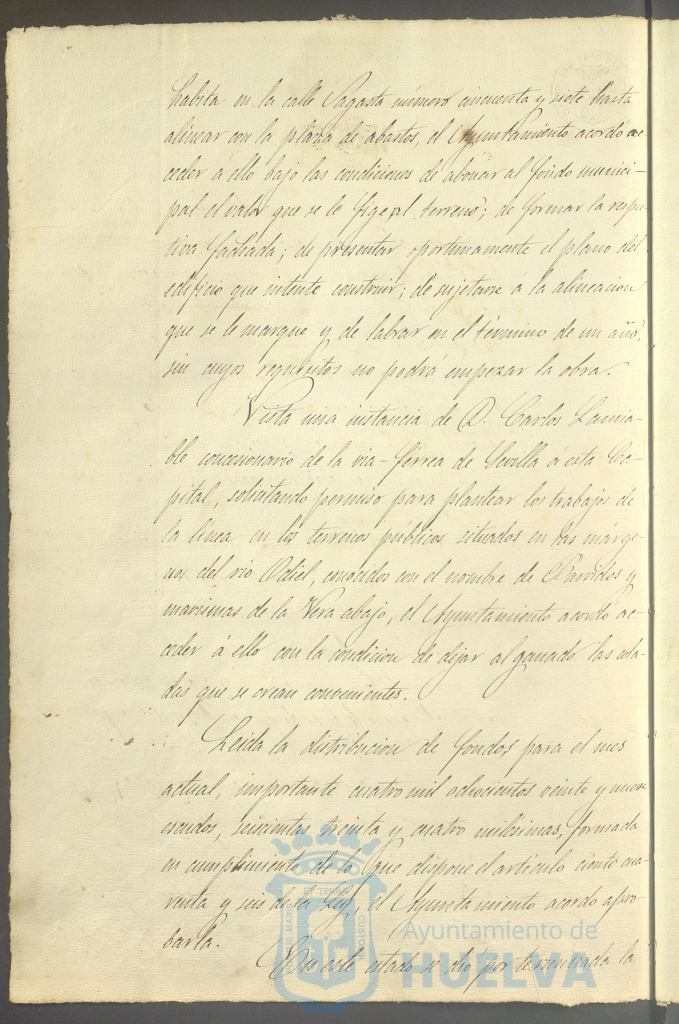 habita en la calle Sagasta número cincuenta y siete hasta
alinear con la plaza de abastos, el Ayuntamiento acordó ac
ceder á ello bajo las condiciones de abonar al fondo munici-
pal el valor que se le fige al terreno; de formar la respec-
tiva fachada; de presentar oportunamente el plano del
edificio que intente construir; de sujetarse á la alineacion
que se le marque y de labrar en el término de un año,
sin cuyos requisitos no podrá empezar la obra.
Vista una instancia de D. Carlos Lamia-
ble concesionario de la via-férrea de Sevilla á esta Ca-
pital, solicitando permiso para plantear los trabajos de
la linea en los terrenos publicos situados en las márge-
nes del rio Odiel, conocidos con el nombre de y
marismas de la Vera abajo, el Ayuntamiento acordo ac-
ceder á ello con la condicion de dejar al ganado las
que se crean convenientes.
Leida la distribucion de fondos para el mes
actual, importante cuatro mil ochocientos veinte y nueve
escudos, seiscientas treinta y cuatro milesimas, formada
en cumplimiento de lo que dispone el artículo ciento cua-
renta y seis de la Ley, el Ayuntamiento acordo apro-
barla.
En este estado se dió por terminada la
Ayuntamiento de
HUELVA